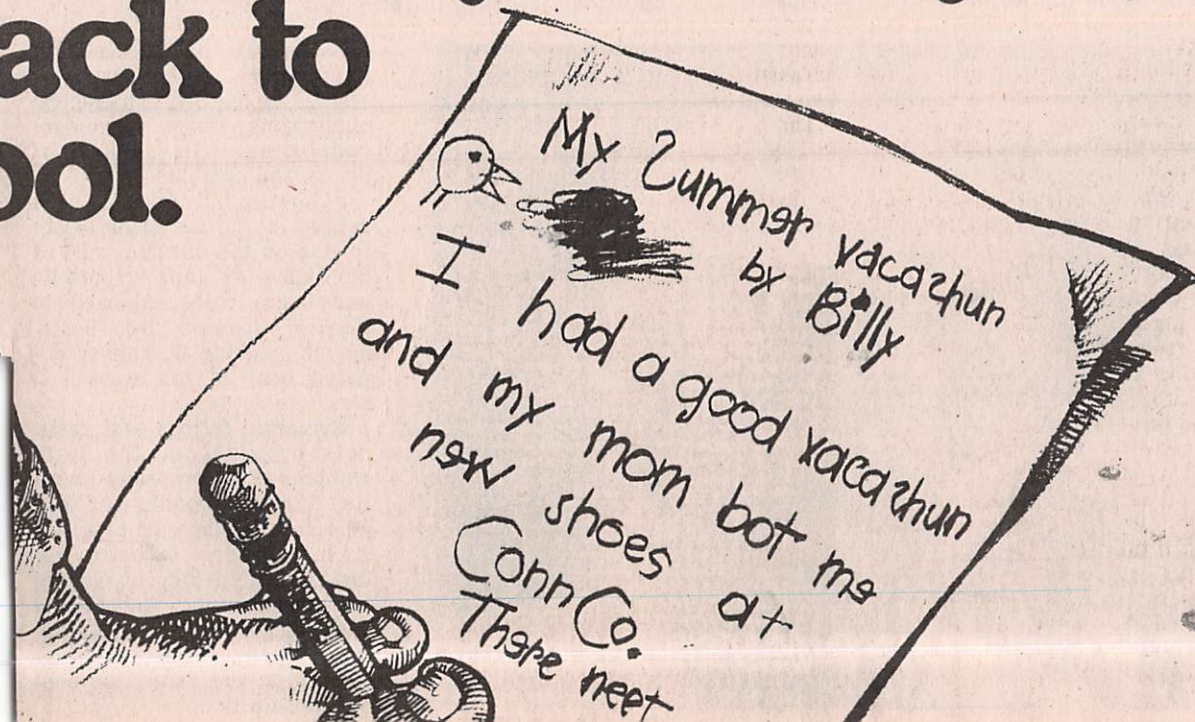 ack to
ool.
My Summer vacashun
by Billy
I had a good vacashun
and my mom bot me
new shoes at
ConnCo.
There neet